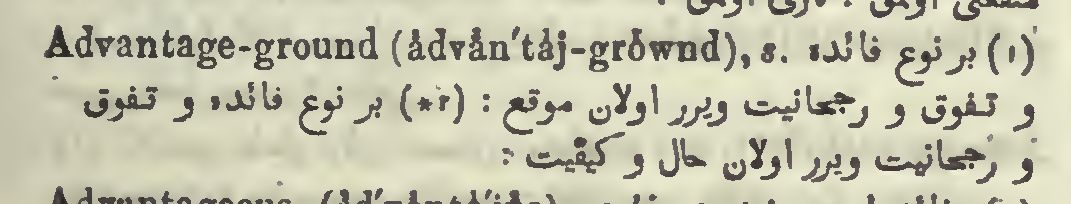 Advantage-ground (ådvån′tåj-grŏwnd), s. (١) بر نوع فائده
و تفوق و رجحانیت ویرر اولان موقع : (٢*) بر نوع فائده و تفوق
و رجحانیت ویرر اولان حال و کیفیت :